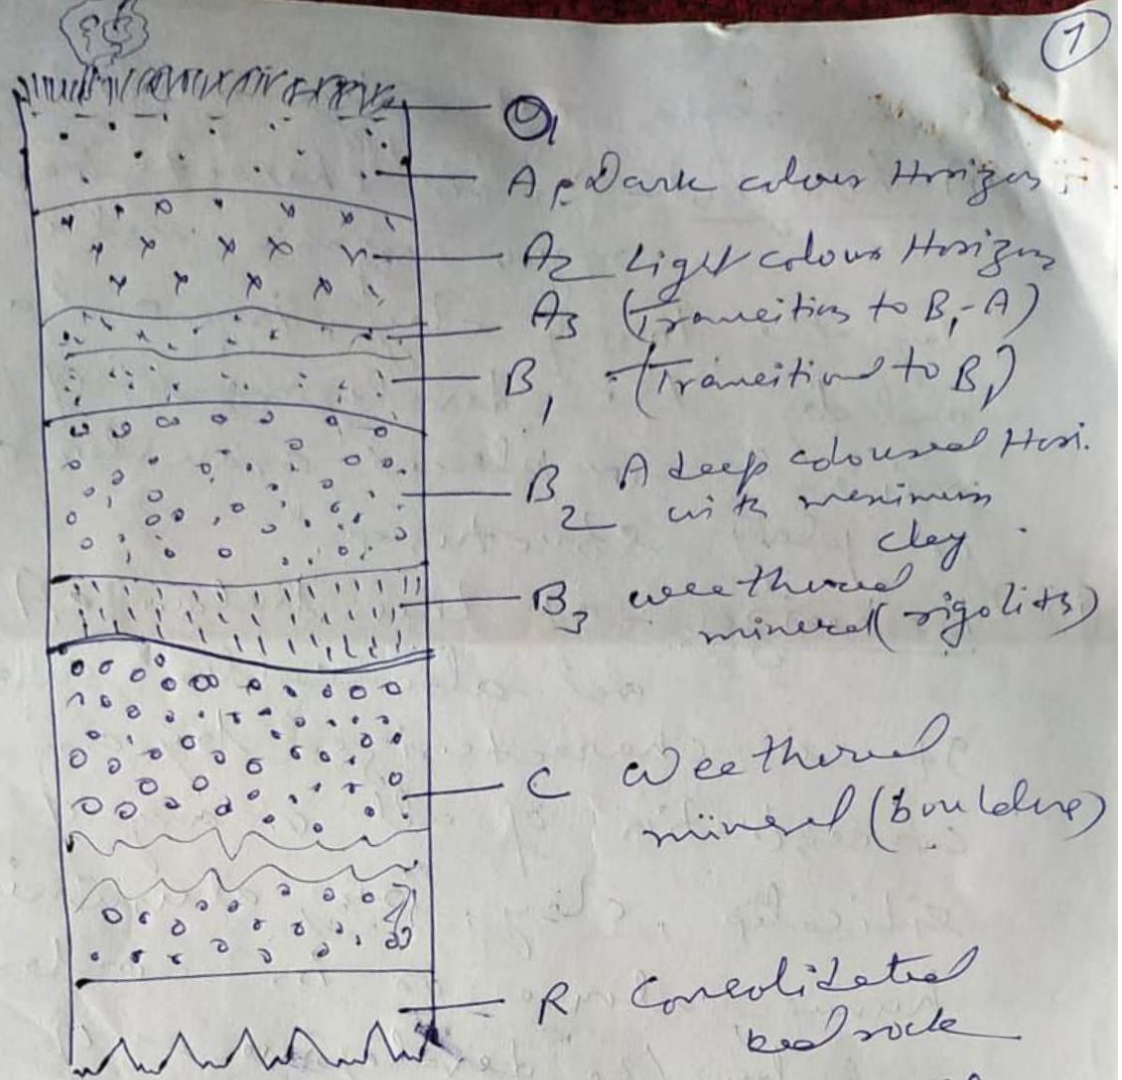 1
O1
A1 Dark colour Horizon
A2 Light colour Horizon
A3 (Transition to B1-A)
B1 (Transitional to B1)
B2 A deep coloured Hori.
with maximum
clay
B3 weathered
mineral (rigolits)
C Weathered
mineral (boulders)
R Consolidated
bed rock